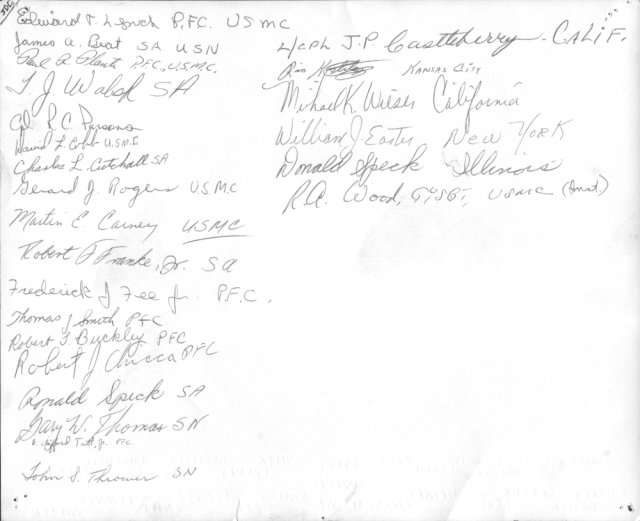 Edward T. Lynch P.F.C. USMC
James A. Beat SA USN
Paul R. Plante P.F.C., U.S.M.C.
T J Walsh SA
Cpl R. C. Parsons
David L. Cobb U.S.M.C
Charles L. Cotchall SA
Gerard J. Rogers U.S.M.C.
Martin E Carney USMC
Robert F Franke, Jr. SA
Frederick J Fee Jr. P.F.C.
Thomas J Smith PFC
Robert J Buckley PFC
Robert J Chicca PFC
Ronald Speck SA
Gary W. Thomas SN
E. Clifford Jr. PFC
John S. Thrower SN
L/CPL J.P Castleberry. CALIF.
KANSAS CITY
Michael K. Wieser California
William J Easter New York
Donald Speck Illinois
R.A. Wood, G/SGT, USMC